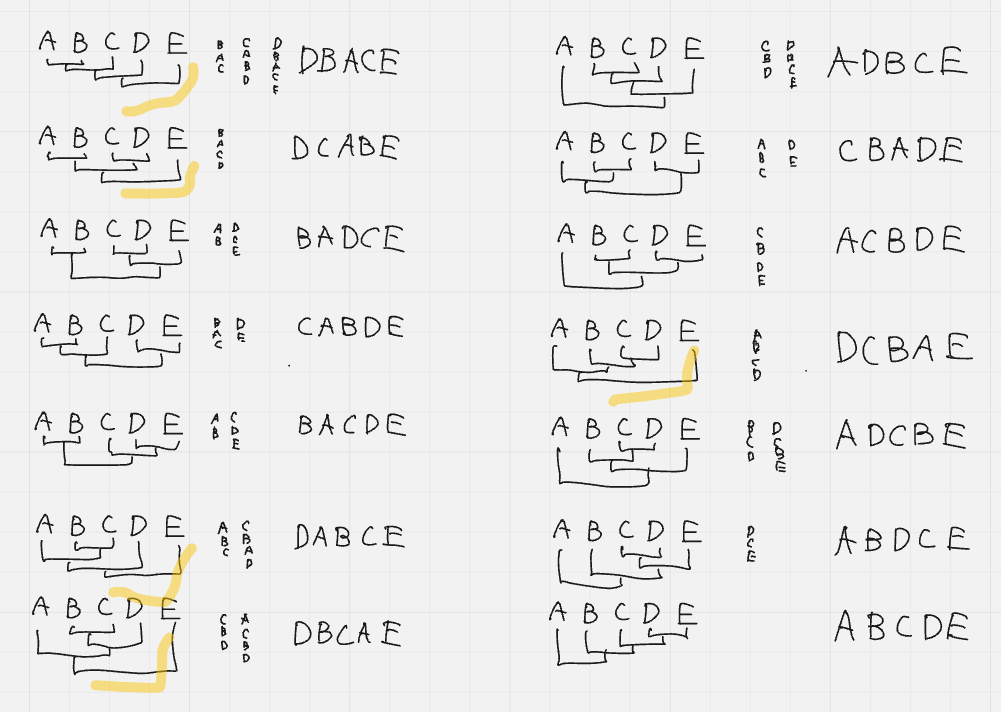 A B C D E
BAC CABD DBACE
DBACE
A B C D E
BACD
DCABE
A B C D E
AB DCE
BADCE
A B C D E
BAC DE
CABDE
A B C D E
AB CDE
BACDE
A B C D E
ABC CBAD
DABCE
A B C D E
CBD ACBD
DBCAE
A B C D E
CBD DBCE
ADBCE
A B C D E
ABC DE
CBADE
A B C D E
CBDE
ACBDE
A B C D E
DCBAE
A B C D E
BCD DCBE
ADCBE
A B C D E
DCE
ABDCE
A B C D E
ABCDE